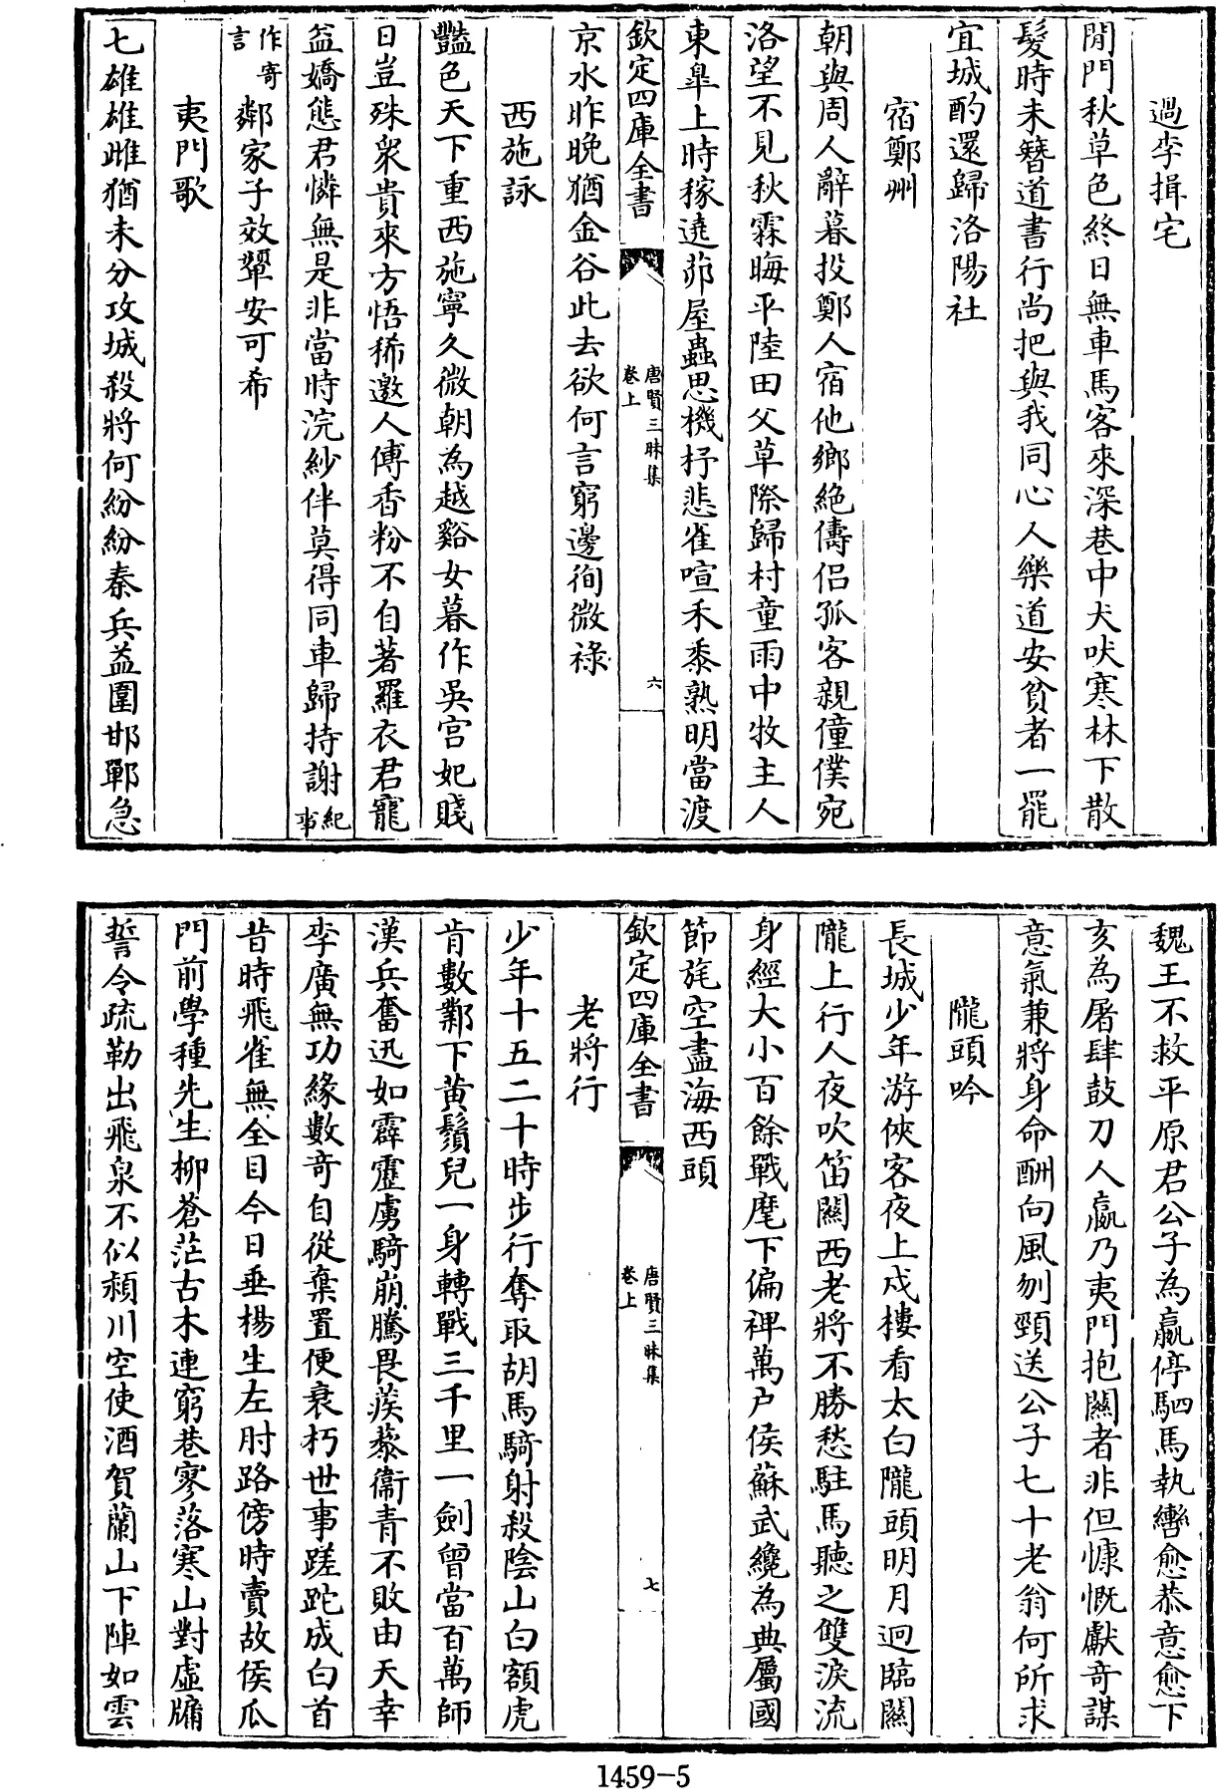 過李揖宅
閒門秋草色終日無車馬客來深巷中犬吠寒林下散
髮時未簪道書行尚把與我同心人樂道安貧者一罷
宜城酌還歸洛陽社
宿鄭州
朝與周人辭暮投鄭人宿他鄉絶儔侣孤客親僮僕宛
洛望不見秋霖晦平陸田父草際歸村童雨中牧主人
東臯上時稼遶茆屋蟲思機杼悲雀喧禾黍熟明當渡
欽定四庫全書
唐賢三昧集
卷上
六
京水昨晚猶金谷此去欲何言窮邊徇微禄
西施詠
豔色天下重西施寧久微朝為越谿女暮作吳宫妃賤
日豈殊衆貴來方悟稀邀人傅香粉不自著羅衣君寵
益嬌態君憐無是非當時浣紗伴莫得同車歸持謝紀事
作寄言鄰家子效顰安可希
夷門歌
七雄雄雌猶未分攻城殺將何紛紛秦兵益圍邯鄲急
魏王不救平原君公子為嬴停駟馬執轡愈恭意愈下
亥為屠肆鼓刀人嬴乃夷門抱關者非但慷慨獻奇謀
意氣兼將身命酬向風刎頸送公子七十老翁何所求
隴頭吟
長城少年游俠客夜上戍樓看太白隴頭明月迥臨關
隴上行人夜吹笛關西老將不勝愁駐馬聽之雙淚流
身經大小百餘戰麾下偏裨萬户侯蘇武纔為典屬國
節旄空盡海西頭
欽定四庫全書
唐賢三昧集
卷上
七
老將行
少年十五二十時步行奪取胡馬騎射殺陰山白額虎
肯數鄴下黄鬚兒一身轉戰三千里一劍曾當百萬師
漢兵奮迅如霹靂虜騎崩騰畏蒺藜衞青不敗由天幸
李廣無功緣數奇自從棄置便衰朽世事蹉跎成白首
昔時飛雀無全目今日垂楊生左肘路傍時賣故侯瓜
門前學種先生柳蒼茫古木連窮巷寥落寒山對虚牖
誓令疏勒出飛泉不似潁川空使酒賀蘭山下陣如雲
1459-5